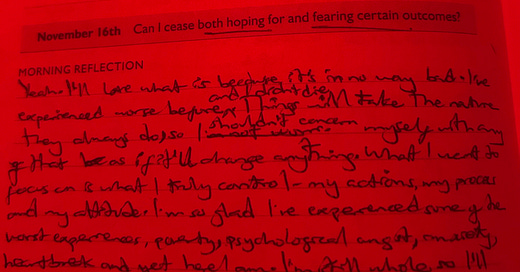 November 16th Can I cease both hoping for and fearing certain outcomes?
MORNING REFLECTION
Yeah. I'll love what is because it's in no way bad. I've
and didn't die
experienced worse before. Things will take the nature
they always do, so I shouldn't concern myself with any
of that as if it'll change anything. What I want to
focus on is what I truly control - my actions, my process
and my attitude. I'm so glad I've experienced some of the
worst experiences, poverty, psychological angst, anxiety,
heartbreak and yet here I am. I'm still whole, so I'll